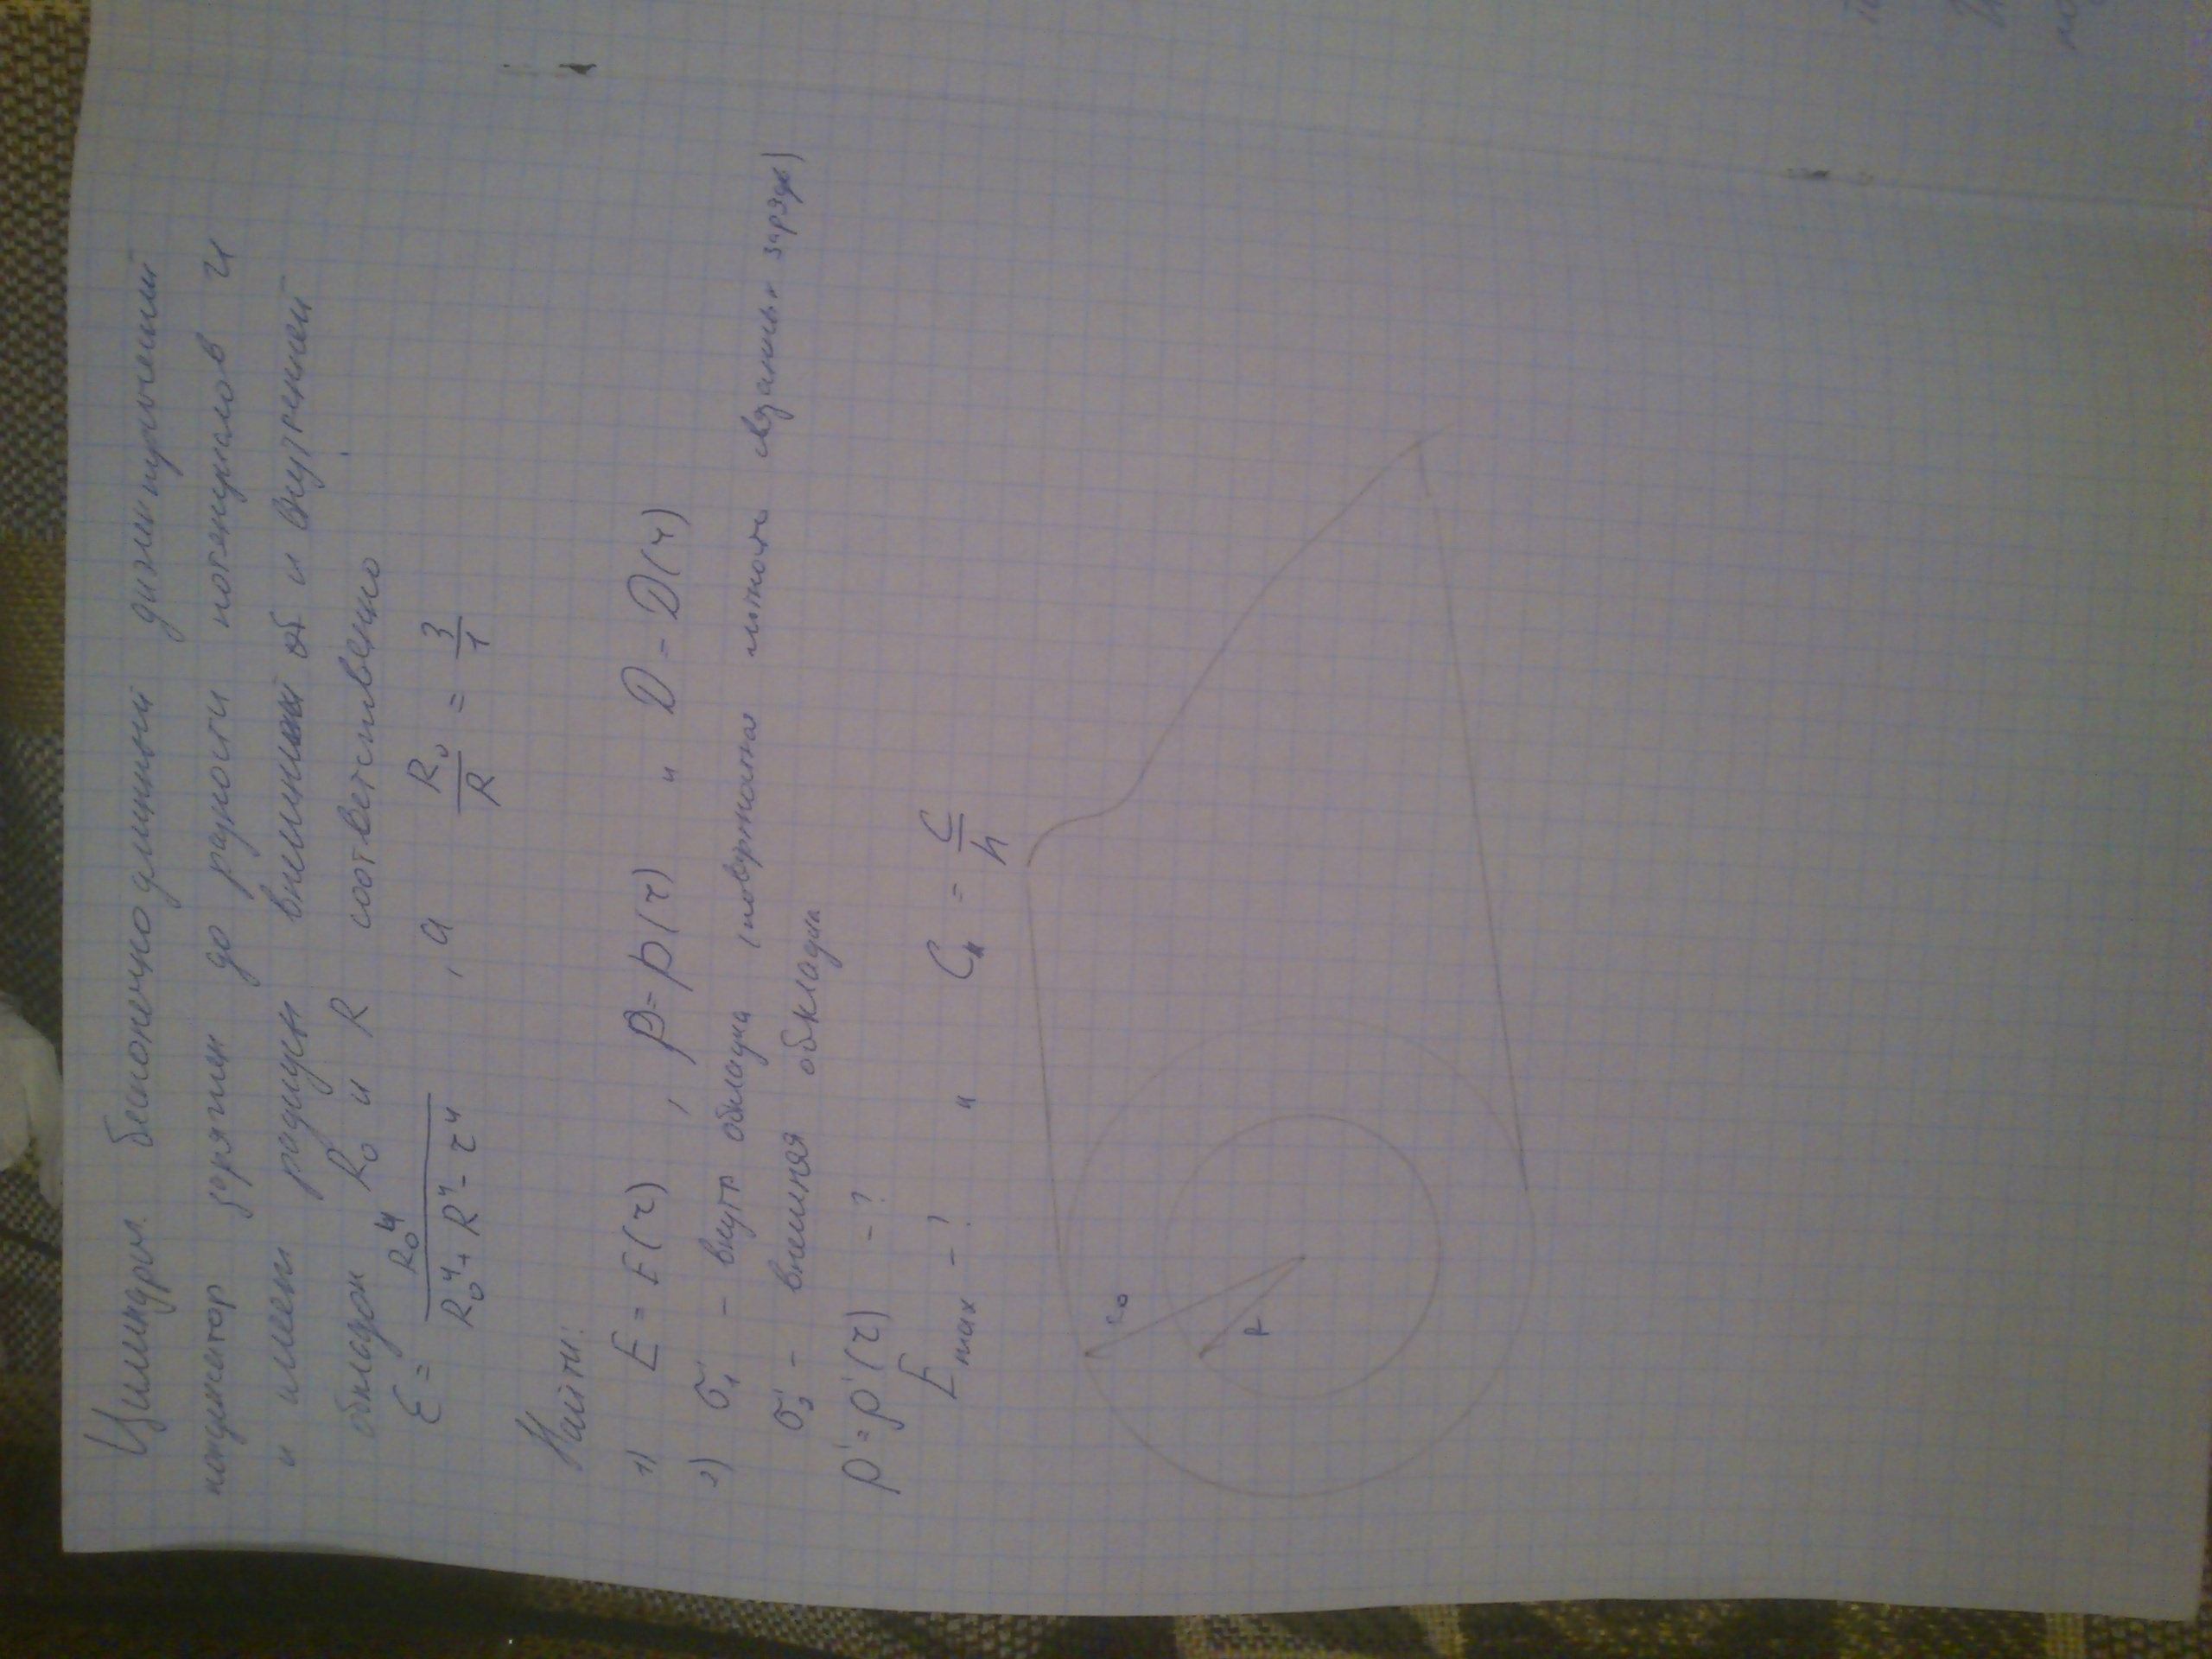 Цилиндрич. бесконечно длинный диэлектрический
конденсатор заряжен до разности потенциалов U
и имеет радиусы внешней об и внутренней
обкладок R₀ и R соответственно
ε = R₀⁴ / (R₀⁴ + R⁴ - r⁴) , а R₀/R = 3/1
Найти:
1) E = E(r) , P = P(r) и D = D(r)
2) σ₁' - внутр обкладка (поверхностная плотность связанных зарядов)
σ₂' - внешняя обкладка
ρ' = ρ'(r) - ?
E max - ? и C = C/h
R₀
R